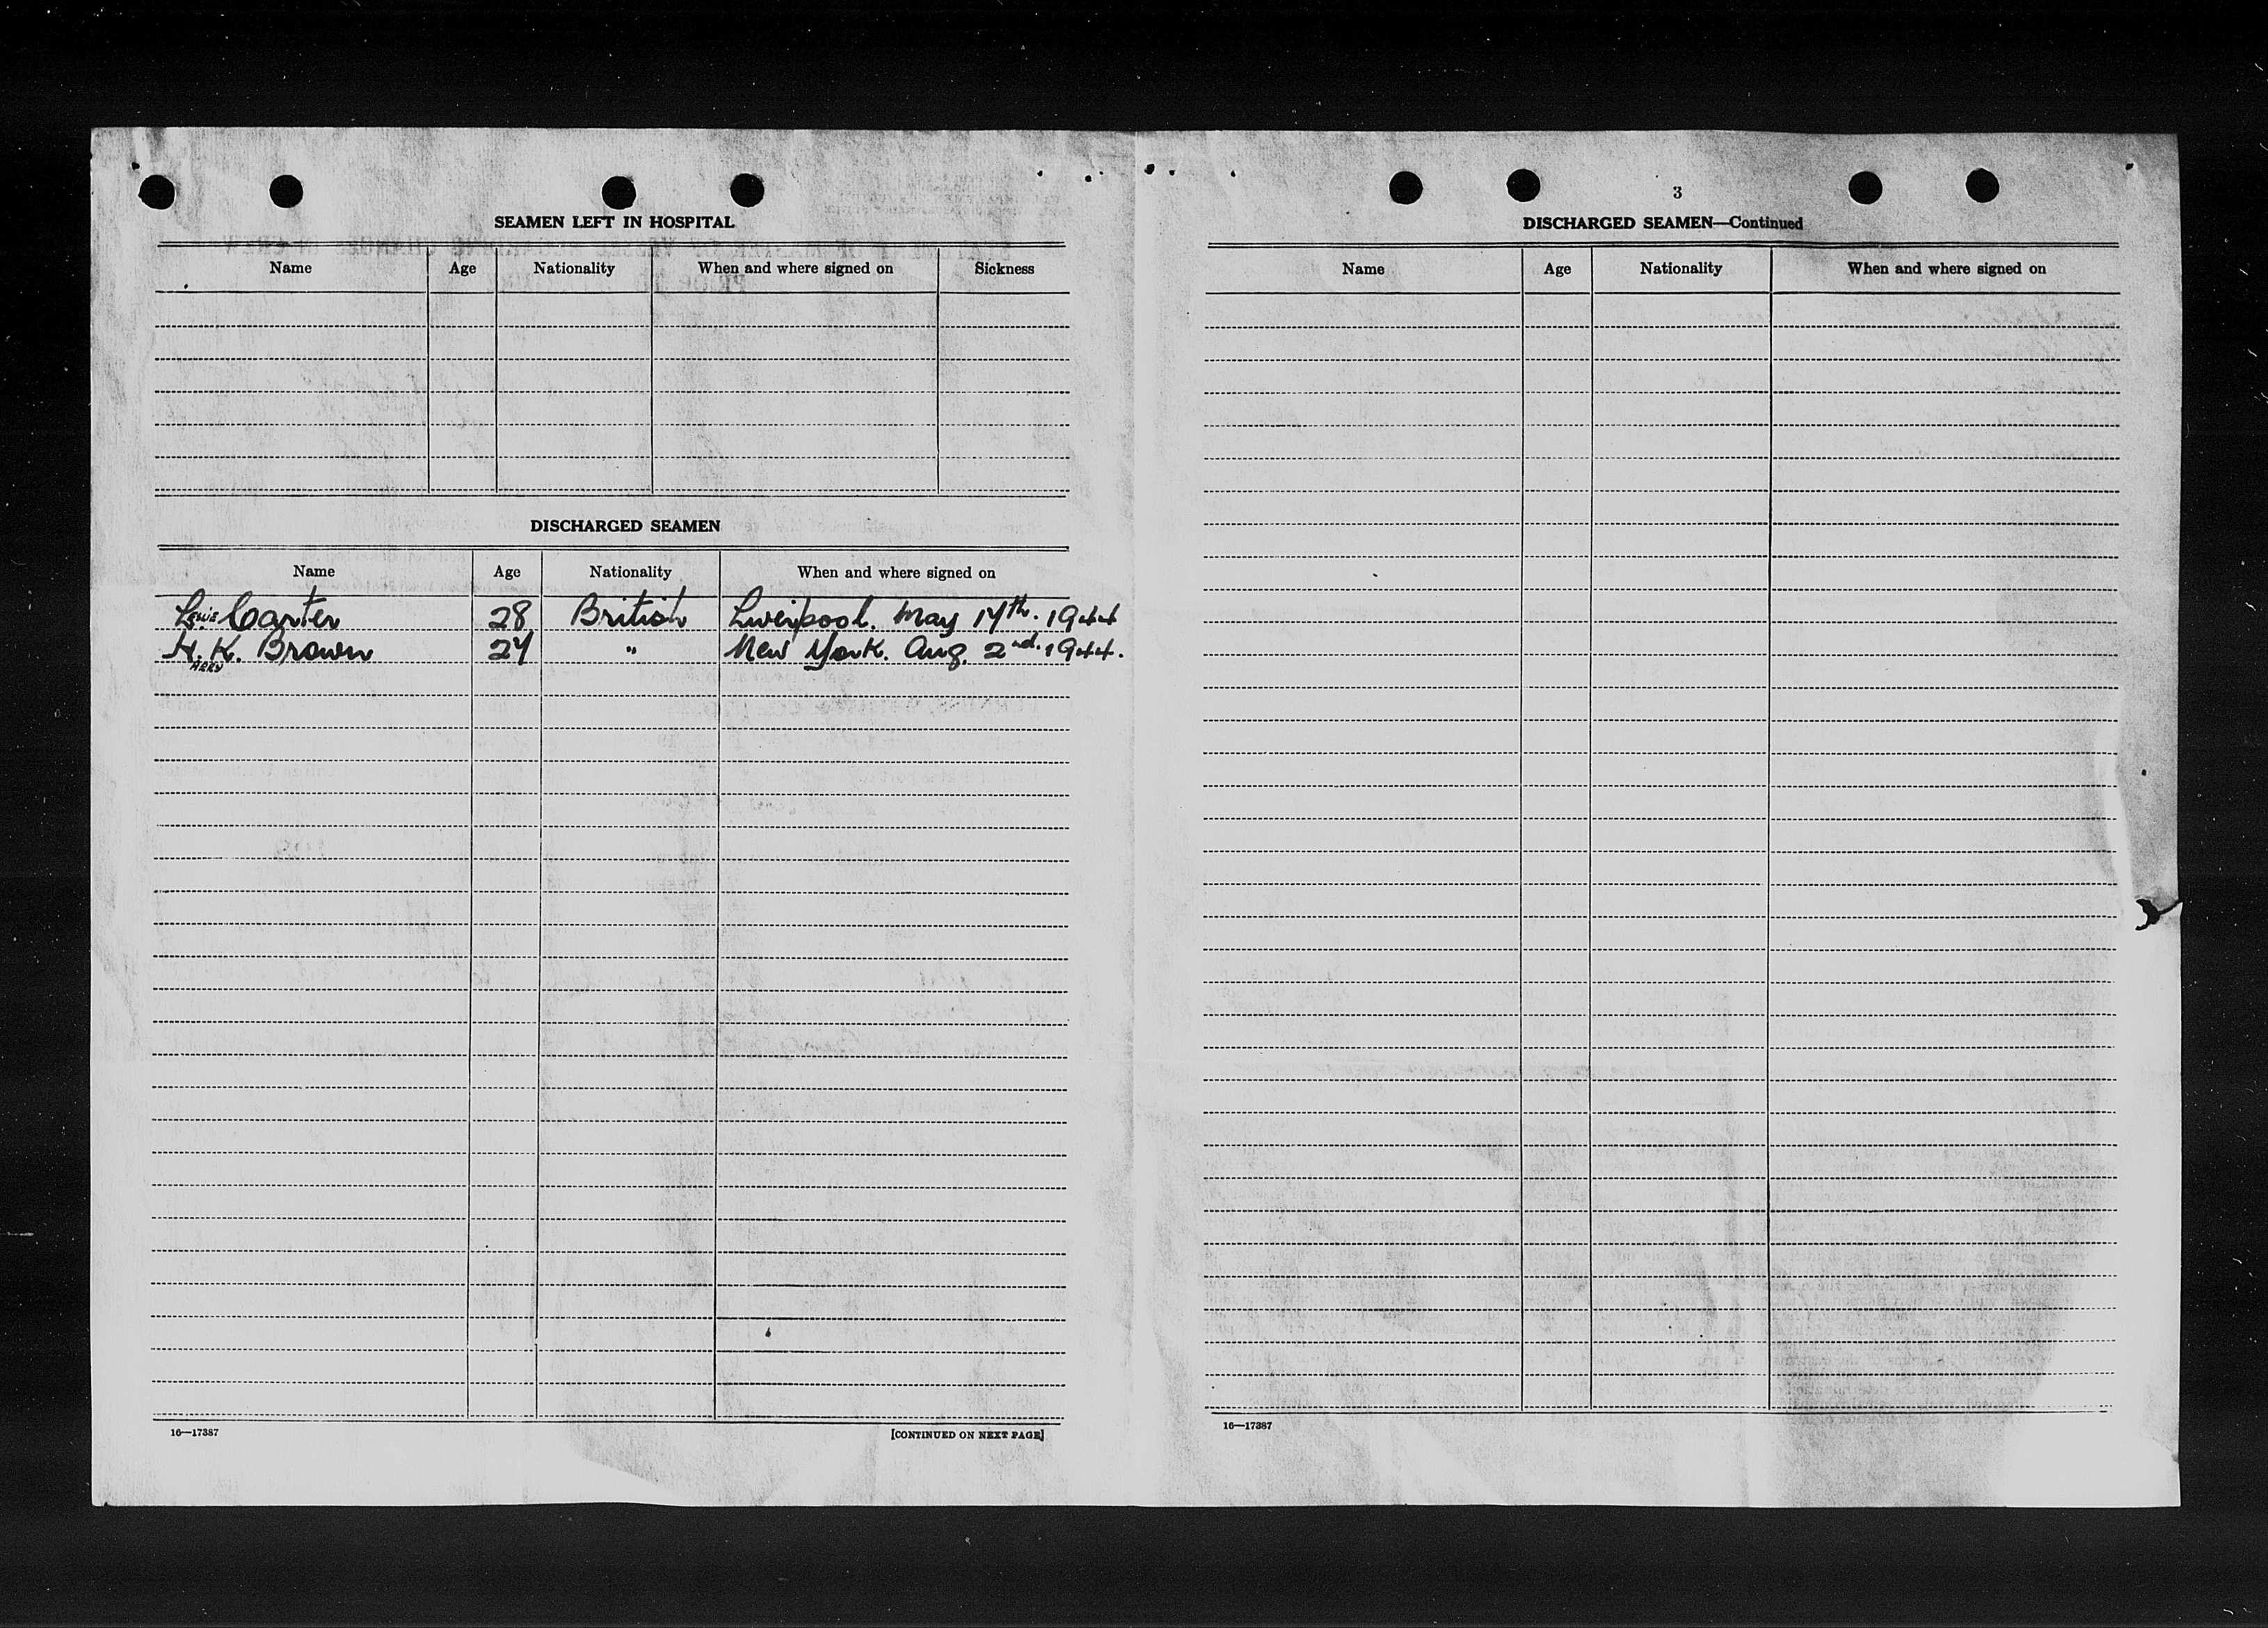 SEAMEN LEFT IN HOSPITAL
Name Age Nationality When and where signed on Sickness
DISCHARGED SEAMEN
Name Age Nationality When and where signed on
Lewis Carter 28 British Liverpool. May 17th. 1944
H. K. Brown 24 " New York. Aug. 2nd. 1944.
ARRY
16—17387
[CONTINUED ON NEXT PAGE]
3
DISCHARGED SEAMEN—Continued
Name Age Nationality When and where signed on
16—17387